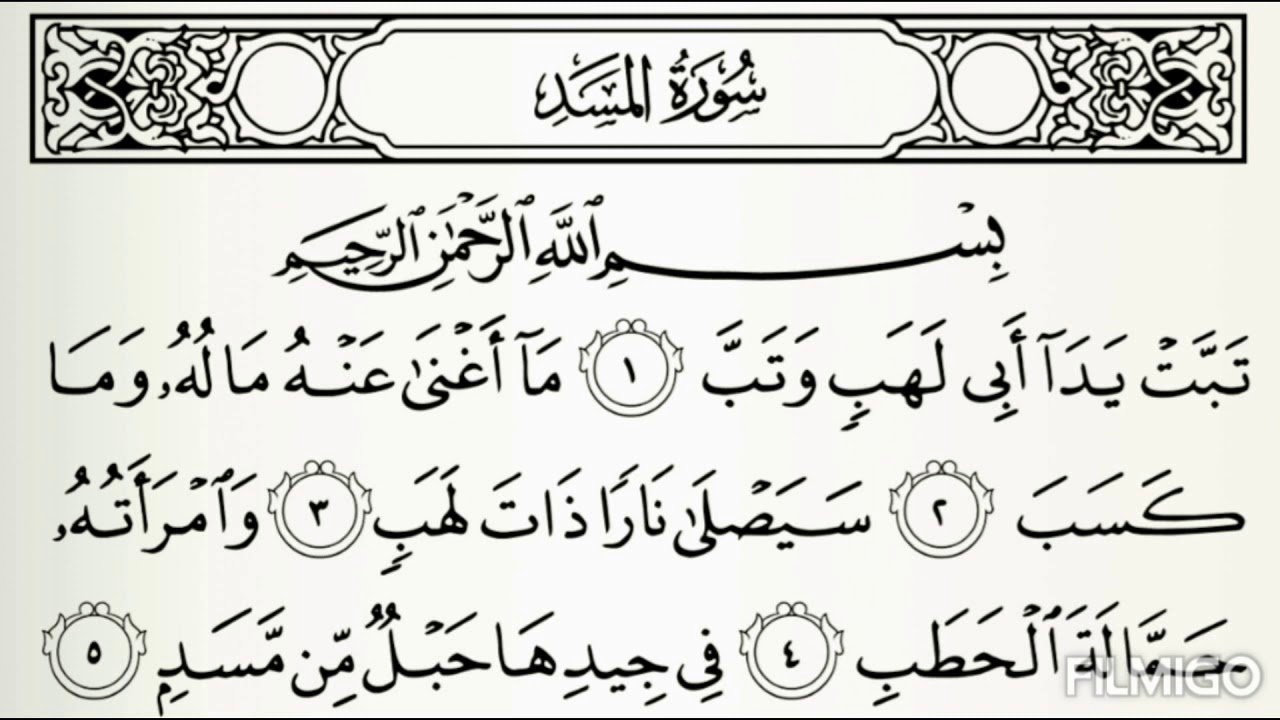 سُورَةُ المَسَدِ
بِسْمِ ٱللَّهِ ٱلرَّحْمَٰنِ ٱلرَّحِيمِ
تَبَّتْ يَدَآ أَبِى لَهَبٍ وَتَبَّ ١ مَآ أَغْنَىٰ عَنْهُ مَالُهُۥ وَمَا
كَسَبَ ٢ سَيَصْلَىٰ نَارًا ذَاتَ لَهَبٍ ٣ وَٱمْرَأَتُهُۥ
حَمَّالَةَ ٱلْحَطَبِ ٤ فِى جِيدِهَا حَبْلٌ مِّن مَّسَدٍ ٥
FILMIGO